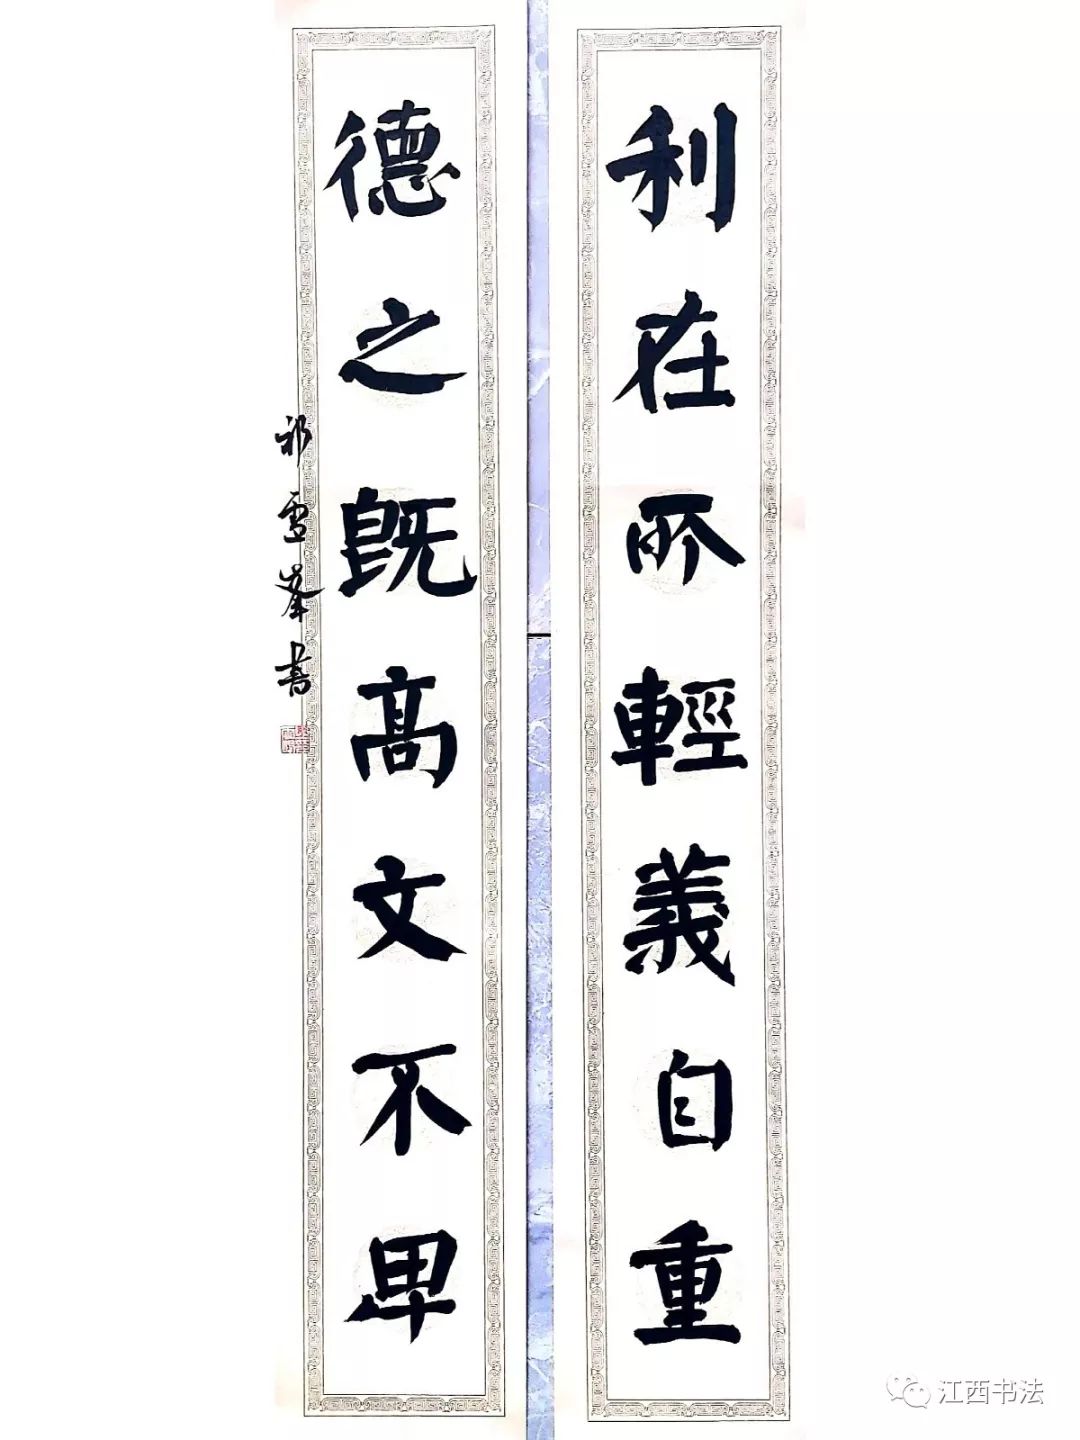 利在所輕義自重
德之既高文不卑
祁雪峯書
江西书法